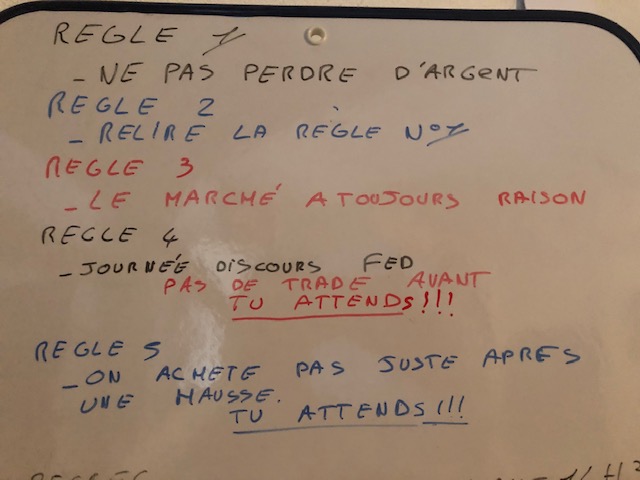 REGLE 1
- NE PAS PERDRE D'ARGENT
REGLE 2
- RELIRE LA REGLE N°1
REGLE 3
- LE MARCHÉ A TOUJOURS RAISON
REGLE 4
- JOURNÉE DISCOURS FED
PAS DE TRADE AVANT
TU ATTENDS!!!
REGLE 5
- ON ACHETE PAS JUSTE APRES
UNE HAUSSE.
TU ATTENDS!!!